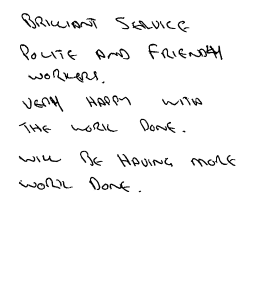 BRILLIANT SERVICE
POLITE AND FRIENDLY
WORKERS.
VERY HAPPY WITH
THE WORK DONE.
WILL BE HAVING MORE
WORK DONE.